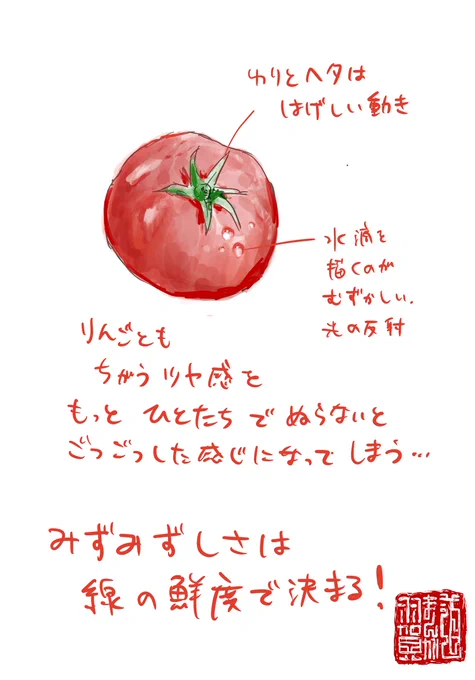 わりとヘタは
はげしい動き
水滴を
描くのが
むずかしい.
光の反射
りんごとも
ちがうツヤ感を
もっと ひとたちで ぬらないと
ごつごつした感じになってしまう…
みずみずしさは
線の鮮度で決まる!